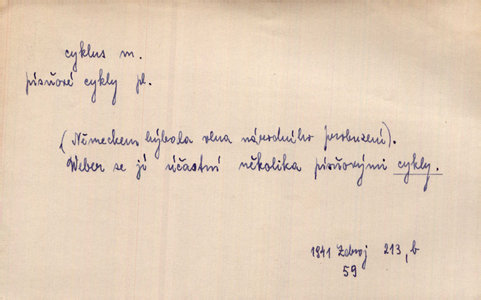 cyklus m.
písňové cykly pl.
(Německem hýbala vlna národního probuzení).
Weber se jí účastní několika písňovými cykly.
1941 Zdroj 213, b
59